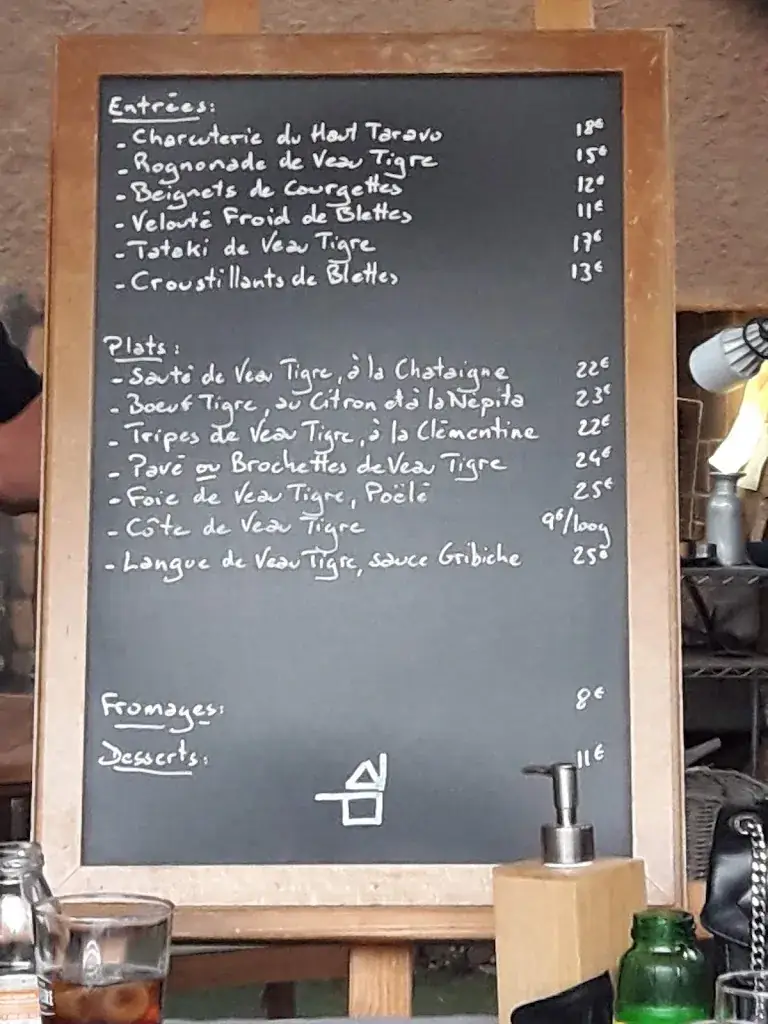 Entrées:
- Charcuterie du Haut Taravo 18€
- Rognonade de Veau Tigre 15€
- Beignets de Courgettes 12€
- Velouté Froid de Blettes 11€
- Tataki de Veau Tigre 17€
- Croustillants de Blettes 13€
Plats:
- Sauté de Veau Tigre, à la Chataigne 22€
- Boeuf Tigre, au Citron et à la Nepita 23€
- Tripes de Veau Tigre, à la Clémentine 22€
- Pavé ou Brochettes de Veau Tigre 24€
- Foie de Veau Tigre, Poêlé 25€
- Côte de Veau Tigre 9€/100g
- Langue de Veau Tigre, sauce Gribiche 25€
Fromages: 8€
Desserts: 11€